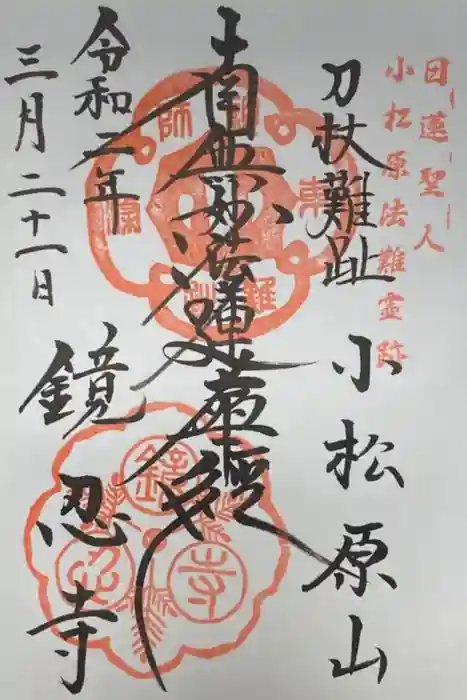 日蓮聖人
小松原法難霊跡
刀杖難趾
小松原山
南無妙法蓮華経
令和二年
三月二十一日
鏡忍寺
鏡
忍
寺